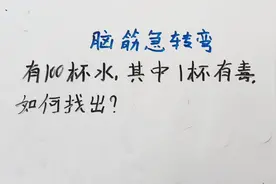 脑筋急转弯
有100杯水,其中1杯有毒.
如何找出?